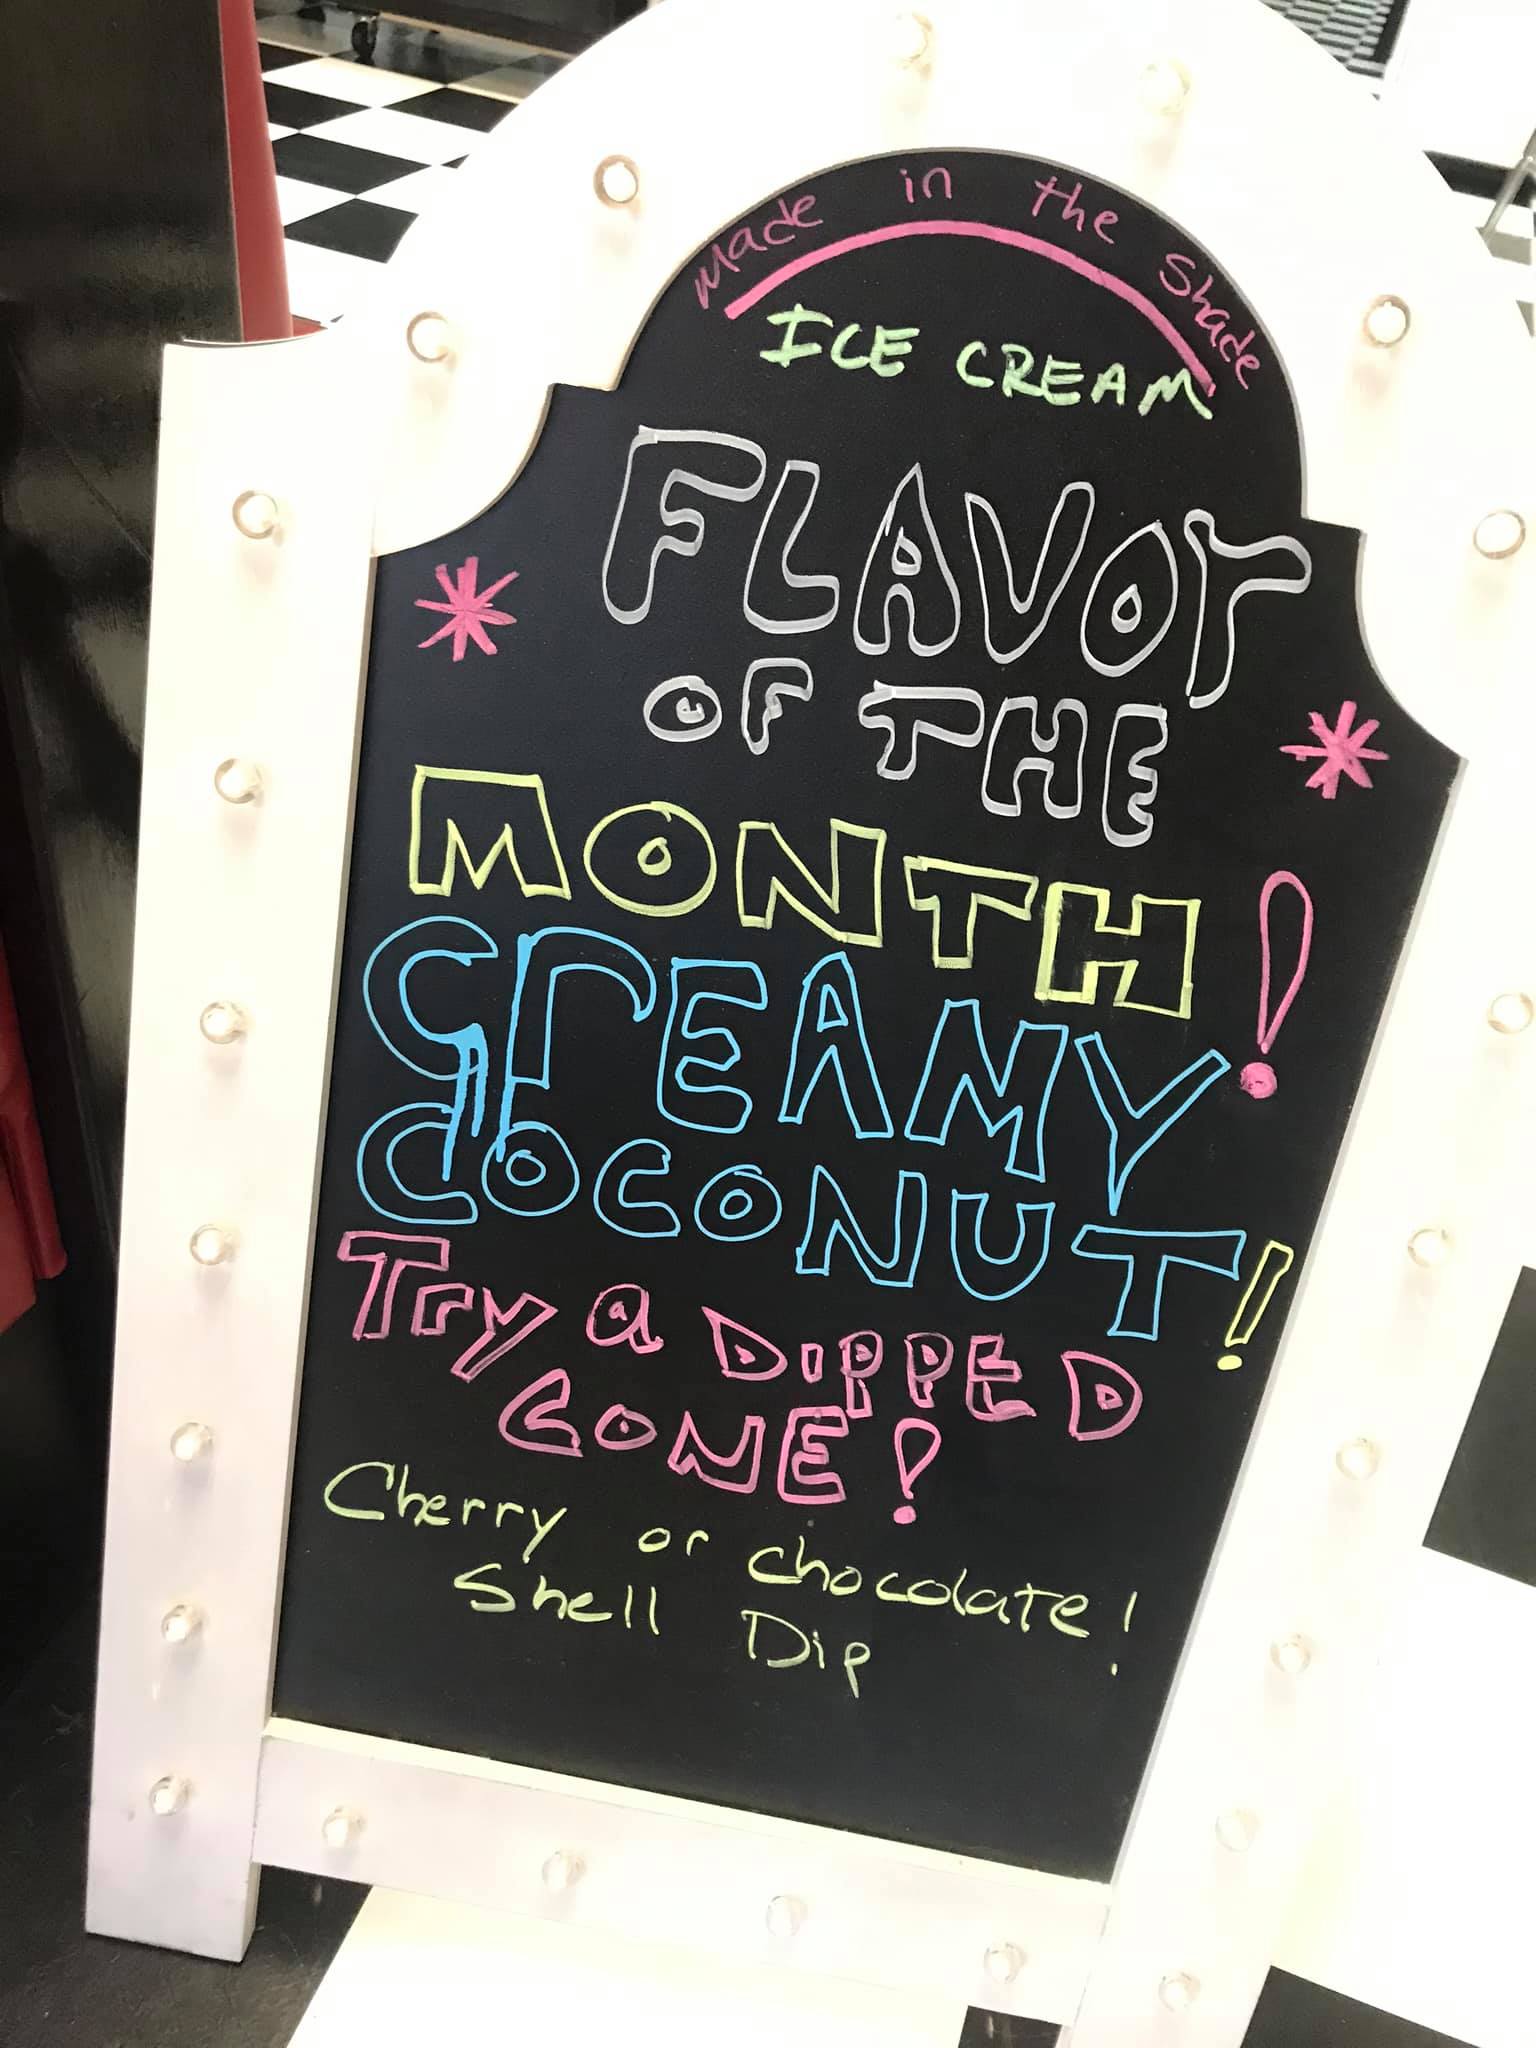 Made in the Shade
ICE CREAM
FLAVOr
OF THE
MONTH!
CrEAMY
COCONUT!
Try a DIPPED
CONE!
Cherry or chocolate!
Shell Dip